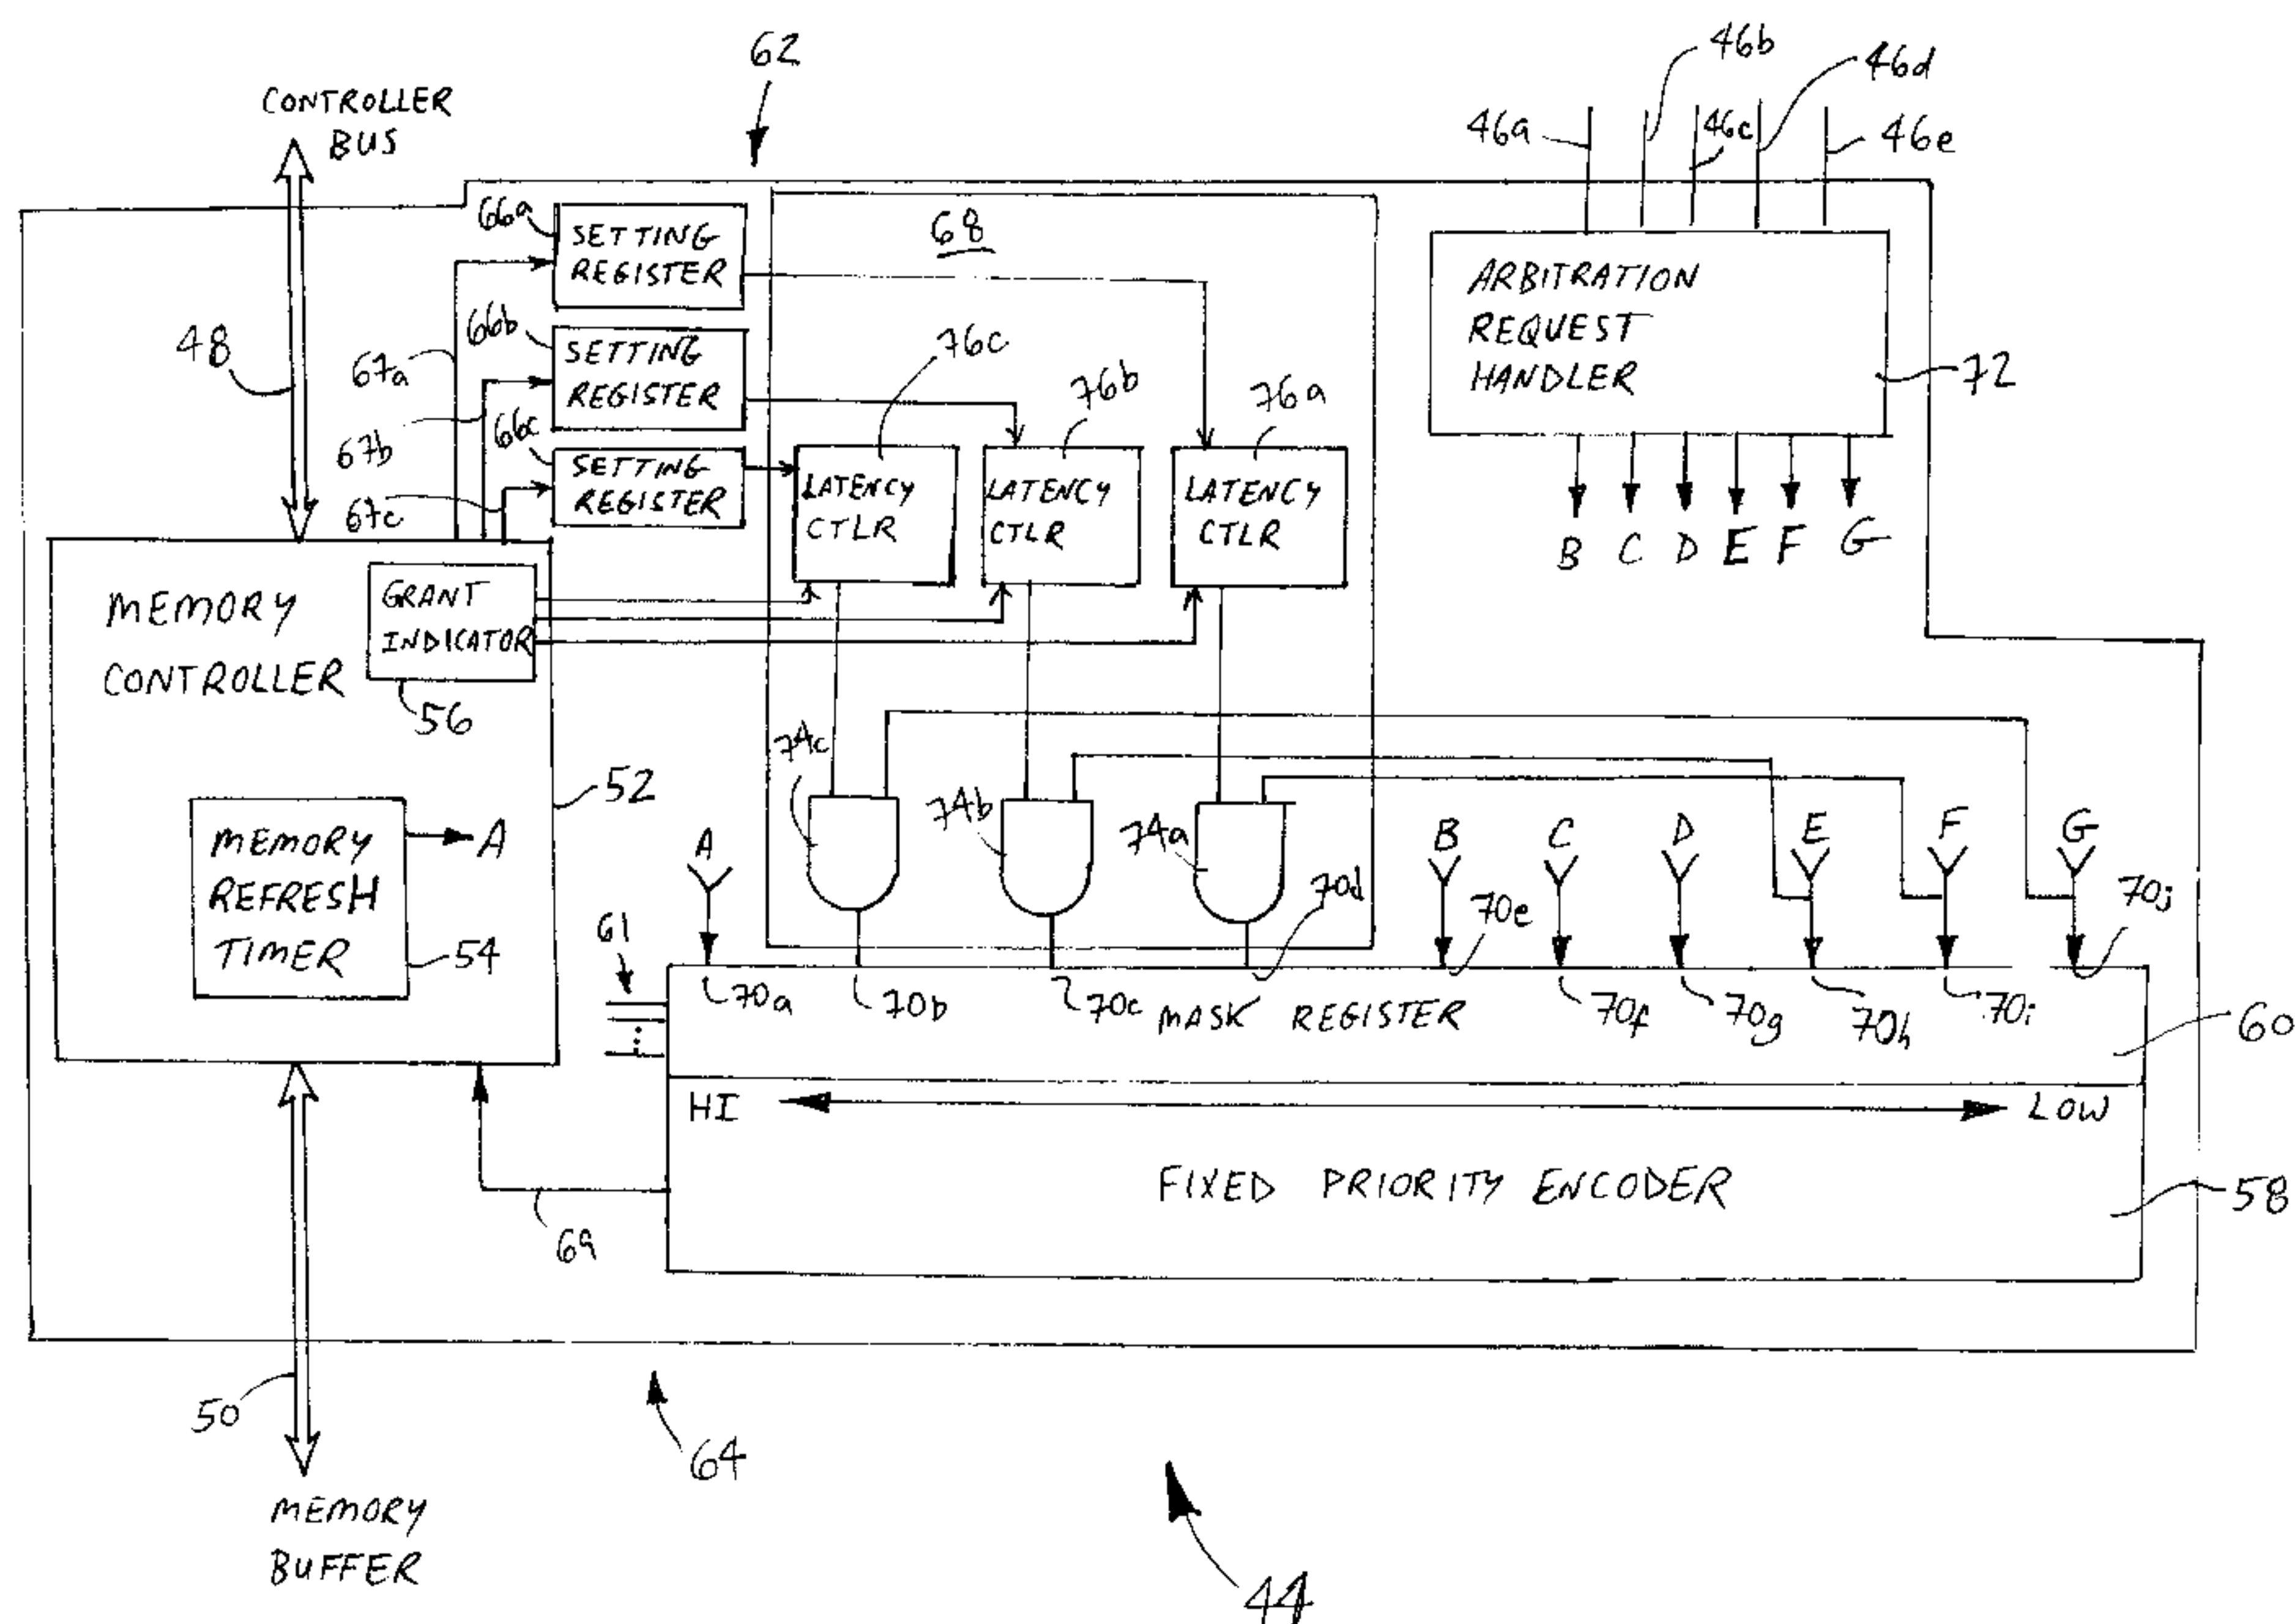 62
46b
46d
CONTROLLER
BUS
46a
46c
46e
66a
SETTING
REGISTER
68
ARBITRATION
REQUEST
HANDLER
72
48
67a
66b
SETTING
REGISTER
76c
76b
76a
67b
66c
SETTING
REGISTER
67c
LATENCY
CTLR
LATENCY
CTLR
LATENCY
CTLR
B C D E F G
MEMORY
CONTROLLER
GRANT
INDICATOR
56
52
74c
74b
74a
MEMORY
REFRESH
TIMER
A
54
A
B
C
D
E
F
G
61
70d
70e
70j
70a
70b
70c
MASK REGISTER
70f
70g
70h
70i
60
HI
LOW
FIXED PRIORITY ENCODER
58
69
50
64
MEMORY
BUFFER
44